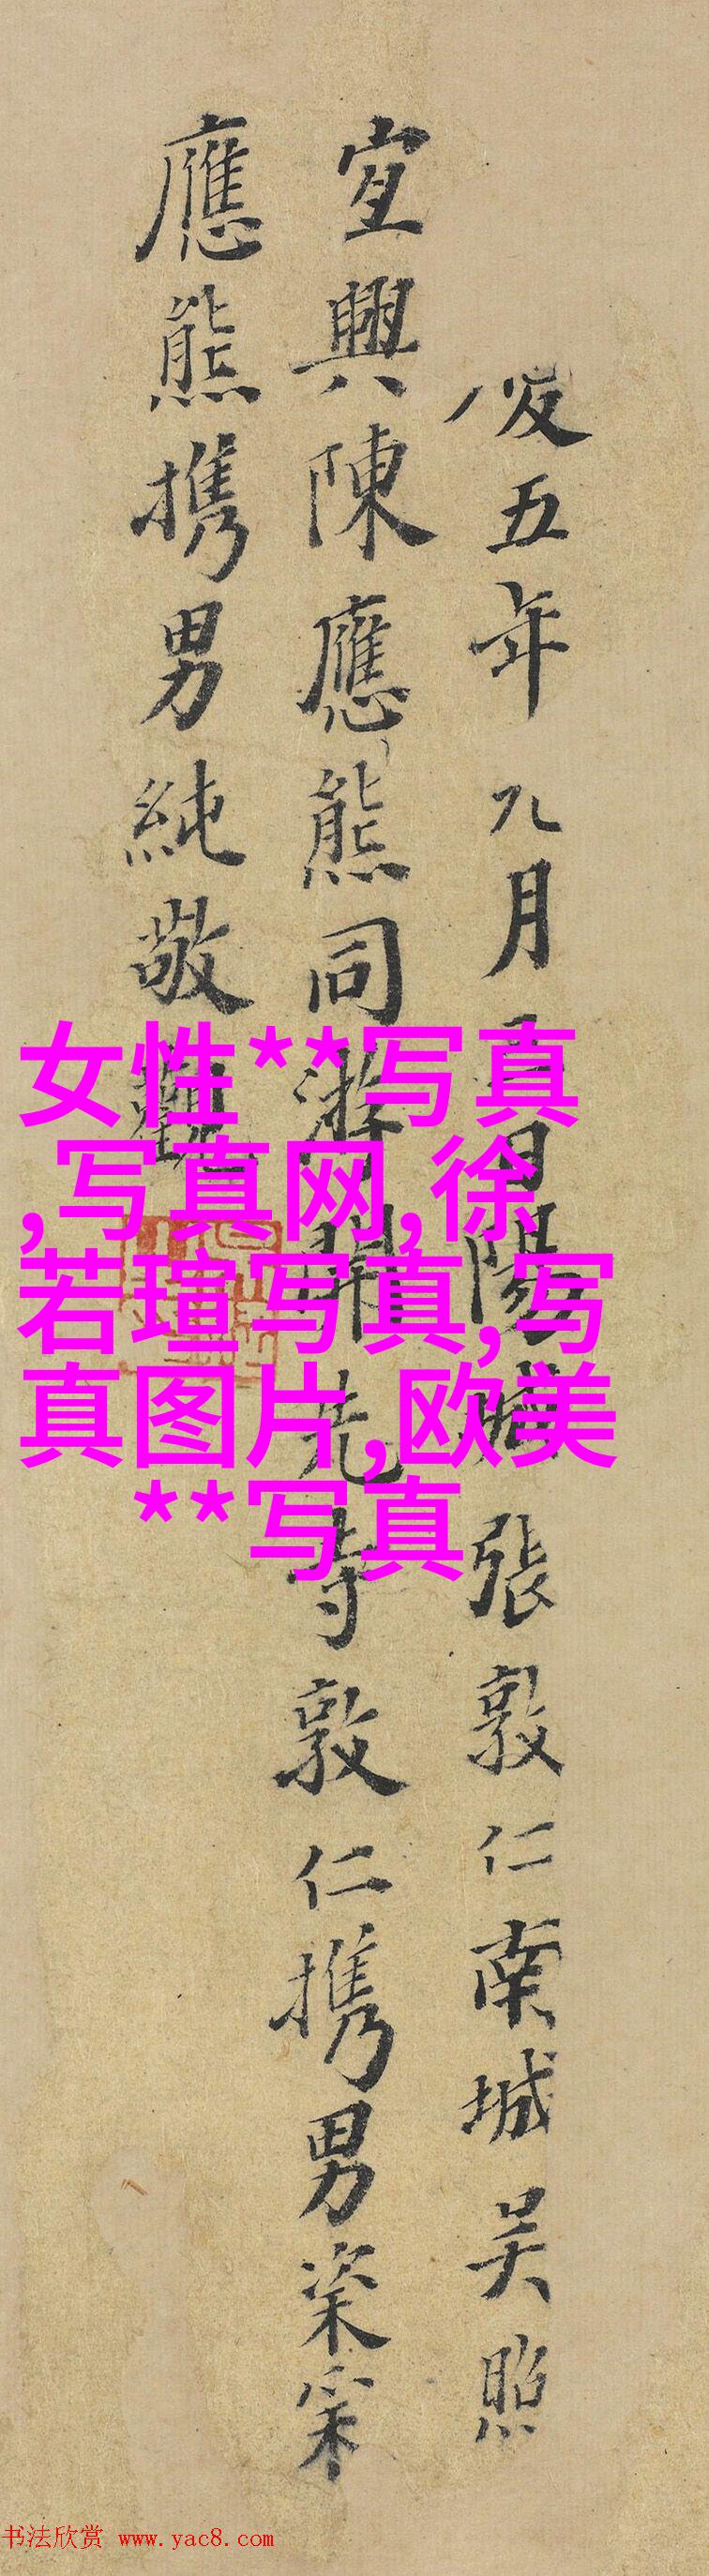 五年九月日陽城張敦仁南城吳照
宜興陳應熊同游開先寺敦仁携男
應熊携男純敬觀
女性**写真
,写真网,徐
若瑄写真,写
真图片,欧美
**写真
书法欣赏 www.yac8.com